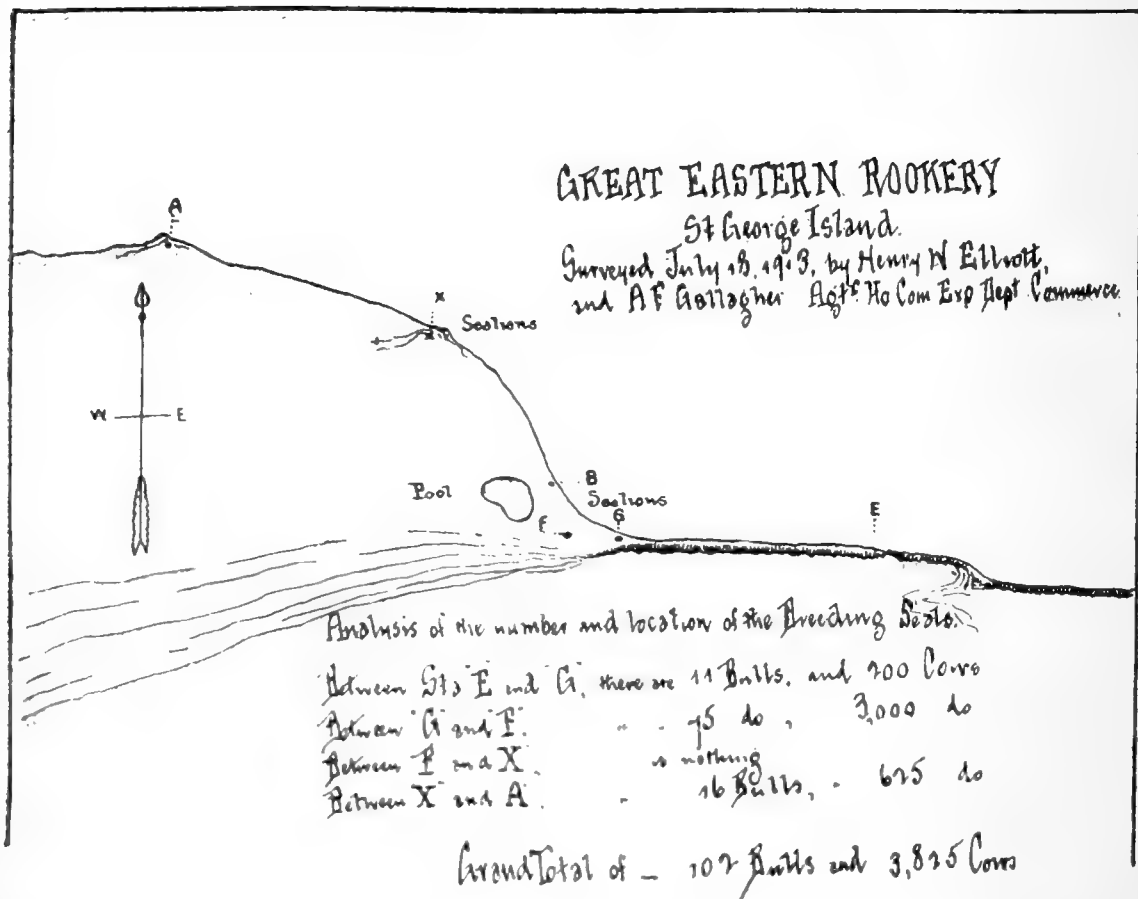 GREAT EASTERN ROOKERY
St George Island.
Surveyed July 18, 1913, by Henry W Elliott,
and A F Gallagher Agts. Ho Com Exp Dept Commerce.
A
x
Sealions
W E
Pool
B
Sealions
G
F
E
Analysis of the number and location of the Breeding Seals.
Between Sta "E" and "G", there are 11 Bulls, and 200 Cows
Between "G" and "F". " " 75 do , 3,000 do
Between F and X. is nothing
Between "X" and A. " 16 Bulls, " 625 do
Grand Total of — 102 Bulls and 3,825 Cows